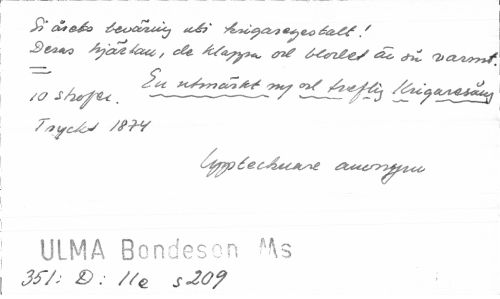 Si årets beväring uti krigaregestalt!
Deras hjärtan, de klappa och blodet än så varmt.
=
10 strofer. En utmärkt ny och treflig Krigaresång
Tryckt 1874
Upptecknare anonym
ULMA Bondeson Ms
351: D: 11e s 209